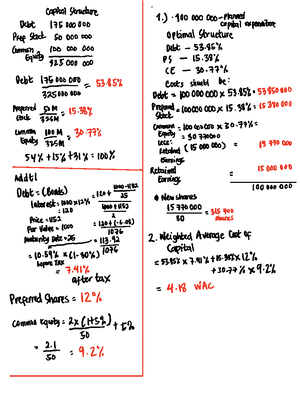 Capital Structure
Debt 175 000 000
Prep Stock 50 000 000
Common Equity 100 000 000
325 000 000
Debt 175 000 000 / 325 000 000 = 53.85%
Preferred Stock 50M / 325M = 15.38%
Common Equity 100M / 325M = 30.77%
54% + 15% + 31% = 100%
Addtl
Debt = (Bonds)
Interest = 1000 x 12%
= 120
Price = 1152
Par Value = 1000
Maturity Date = 25
= 120 + 1000-1152 / 25
1000 + 1152 / 2
= 120 + (-6.08)
1076
= 113.92
1076
= 10.59% x (1-30%)
before tax
= 7.41%
after tax
Preferred Shares = 12%
Common Equity = 2 x (1+5%) / 50 + 5%
= 2.1 / 50 = 9.2%
1.) 100 000 000 - Planned capital expenditure
Optimal Structure
Debt - 53.85%
PS - 15.38%
CE - 30.77%
Costs should be:
Debt = 100 000 000 x 53.85% = 53 850 000
Preferred Stock = 100 000 000 x 15.38% = 15 380 000
Common Equity = 100 000 000 x 30.77% =
= 30 770 000
Less: Retained Earnings (15 000 000) 15 770 000
Retained Earnings 15 000 000
100 000 000
# New shares
15 770 000 / 50 = 315 400 shares
2. Weighted Average Cost of Capital
= 53.85% x 7.41% + 15.38% x 12%
+ 30.77% x 9.2%
= 4.18 WAC